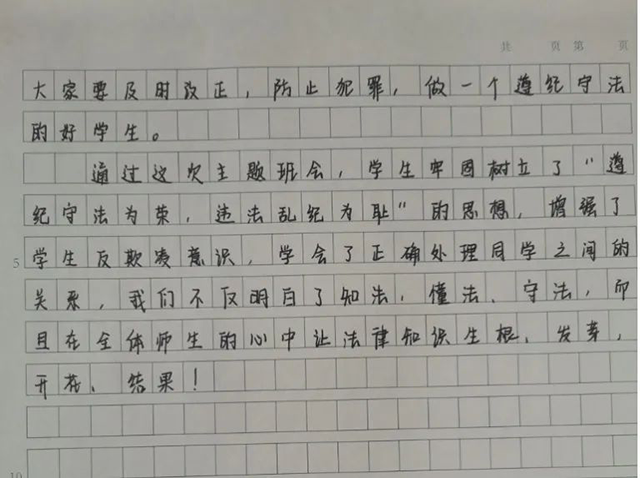 共 页 第 页
大家要及时改正,防止犯罪,做一个遵纪守法
的好学生。
通过这次主题班会,学生牢固树立了“遵
纪守法为荣,违法乱纪为耻”的思想,增强了
5 学生反欺凌意识,学会了正确处理同学之间的
关系,我们不仅明白了知法、懂法、守法,而
且在全体师生的心中让法律知识生根、发芽,
开花、结果!
10